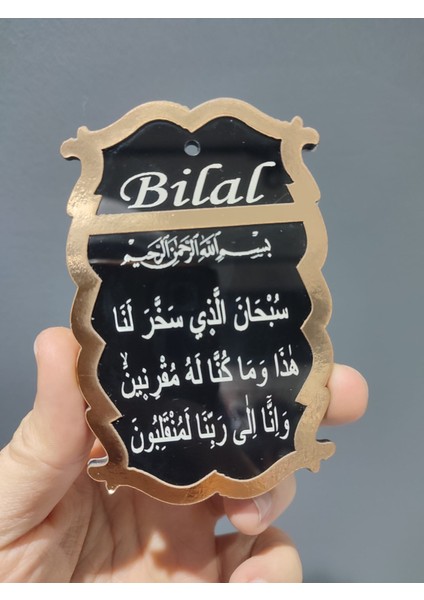 Bilal
بسم الله الرحمن الرحيم
سُبْحَانَ الَّذِي سَخَّرَ لَنَا
هٰذَا وَمَا كُنَّا لَهُ مُقْرِنِينَۙ
وَاِنَّٓا اِلٰى رَبِّنَا لَمُنْقَلِبُونَ